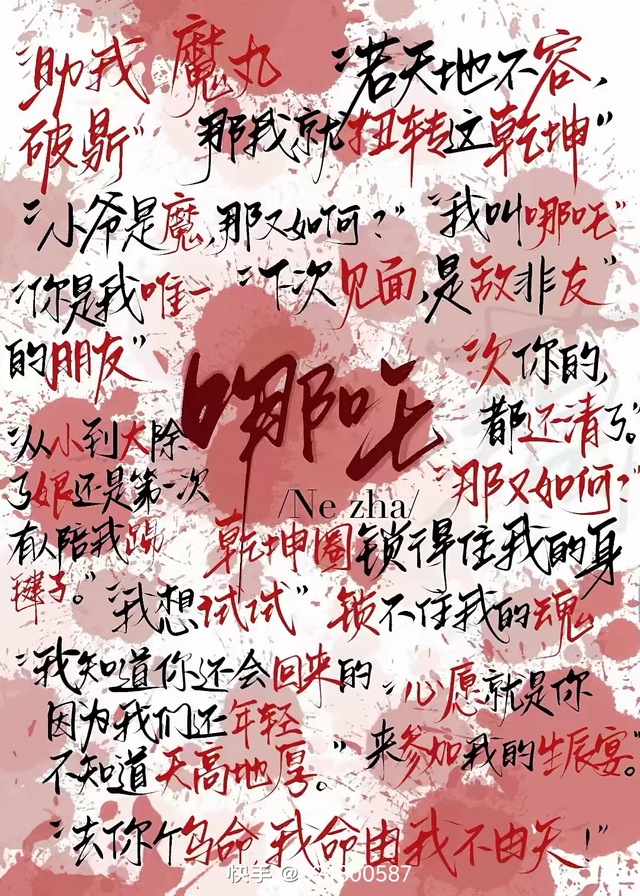 “助我魔丸
破鼎”
“若天地不容,
那我就扭转这乾坤”
“小爷是魔,那又如何?”
“我叫哪吒”
“你是我唯一
的朋友”
“下次见面,是敌非友”
哪吒
/Ne zha/
欠你的,
都还清了。”
“从小到大除
了娘还是第一次
有人陪我踢
毽子。”
“那又如何?”
乾坤圈锁得住我的身
锁不住我的魂
“我想试试”
“我知道你还会回来的
因为我们还年轻
不知道天高地厚。”
“心愿就是你
来参加我的生辰宴。”
“去你个鸟命,我命由我不由天!”
快手